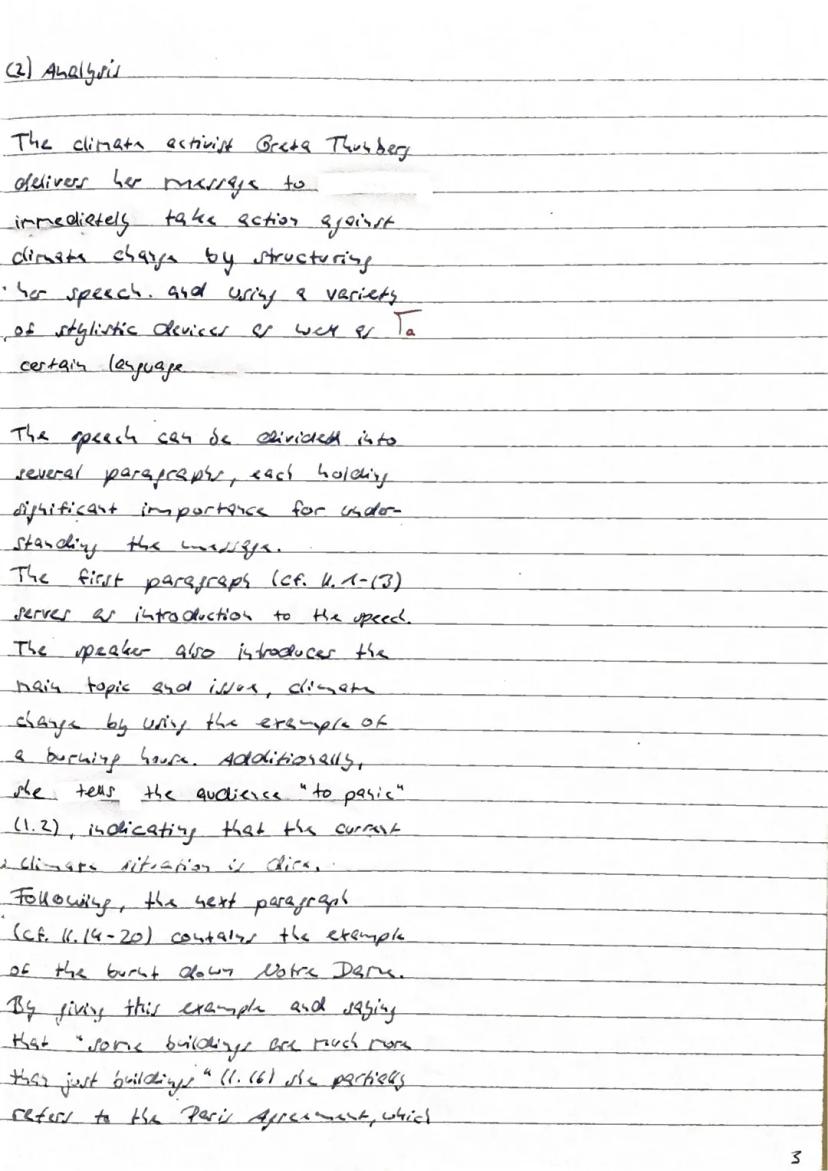 (2) Analysis
The climate activist Greta Thunberg
delivers her message to
immediately take action against
climate change by structuring
her speech. and using a variety
of stylistic devices as well as Γa
certain language
The speech can be divided into
several paragraphs, each holding
significant importance for under-
standing the message.
The first paragraph (cf. ll. 1-13)
serves as introduction to the speech.
The speaker also introduces the
main topic and issue, climate
change by using the example of
a burning house. Additionally,
she tells the audience "to panic"
(l.2), indicating that the current
climate situation is dire.
Following, the next paragraph
(cf. ll. 14-20) contains the example
of the burnt down Notre Dame.
By giving this example and saying
that "some buildings are much more
than just buildings" (l. 16) she partially
refers to the Paris Agreement, which
3